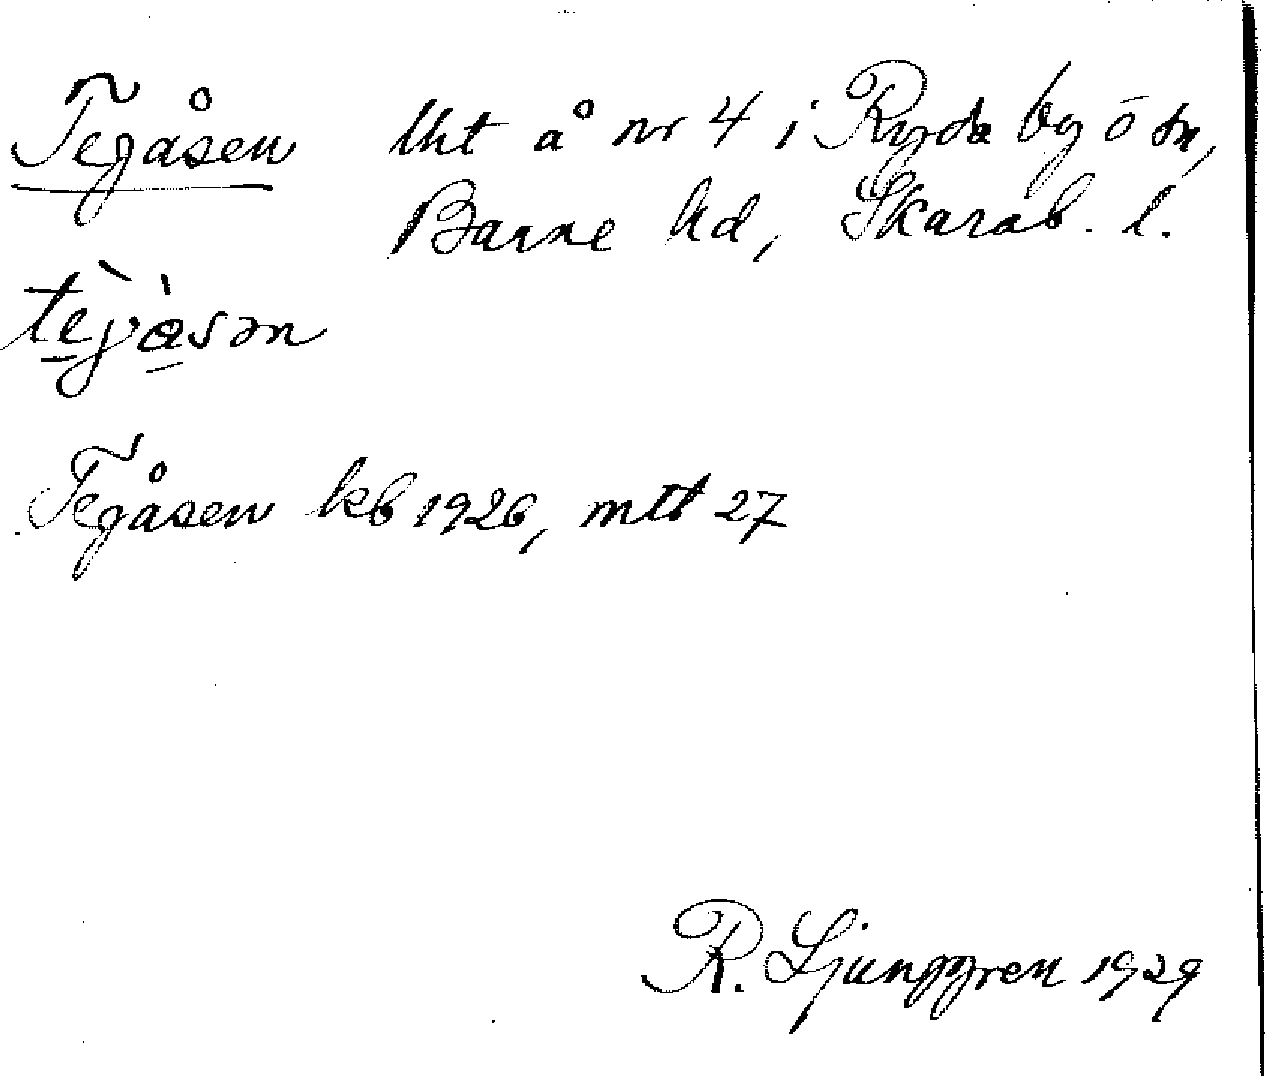 Tegåsen lht å nr 4 i Ryda by o sn,
Barne hd, Skarab. l.
Tegåsen kb 1926, mtl 27
R. Ljunggren 1929